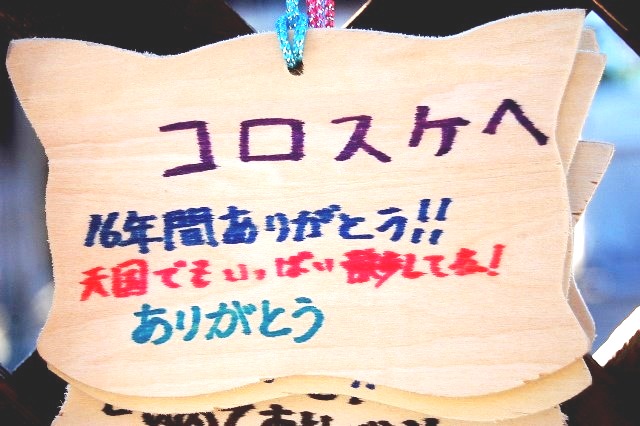 コロスケへ
16年間ありがとう!!
天国でもいっぱい散歩してね!
ありがとう